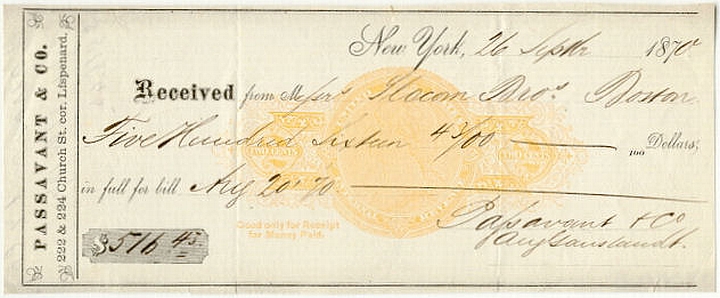 PASSAVANT & CO.
222 & 224 Church St. cor. Lispenard.
New York, 26 Septbr 1870
Received from Messrs Slocom Bros Boston
Five Hundred Sixteen 45/00 100 Dollars,
in full for bill Aug 20' 70
Good only for Receipt
for Money Paid.
$516 45
Passavant & Co